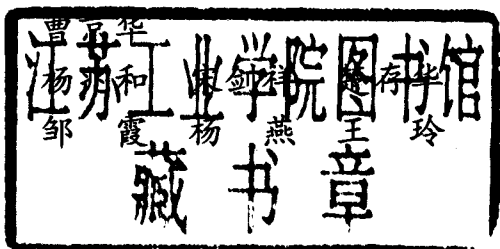 曹 华
江苏工业学院图书馆
杨 和 宋 剑 祥 存 华
邹 霞 杨 燕 王 玲
藏书章